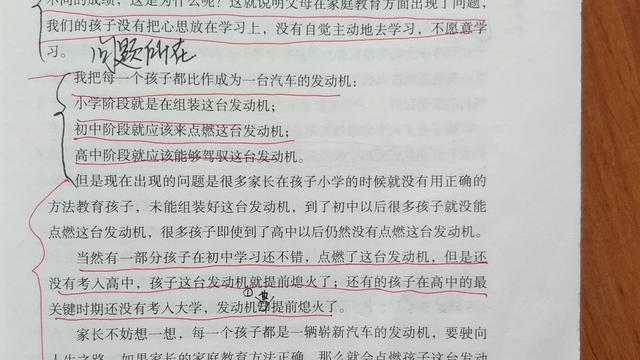 不同的成绩，这是为什么呢？这就说明父母在家庭教育方面出现了问题，
我们的孩子没有把心思放在学习上，没有自觉主动地去学习，不愿意学
习。 问题所在
我把每一个孩子都比作成为一台汽车的发动机：
小学阶段就是在组装这台发动机；
初中阶段就应该来点燃这台发动机；
高中阶段就应该能够驾驭这台发动机。
但是现在出现的问题是很多家长在孩子小学的时候就没有用正确的
方法教育孩子，未能组装好这台发动机，到了初中以后很多孩子就没能
点燃这台发动机，很多孩子即使到了高中以后仍然没有点燃这台发动机。
当然有一部分孩子在初中学习还不错，点燃了这台发动机，但是还
没有考入高中，孩子这台发动机就提前熄火了；还有的孩子在高中的最
关键时期还没有考入大学，发动机提前熄火了。
家长不妨想一想，每一个孩子都是一辆崭新汽车的发动机，要驶向
人生之路，如果家长的家庭教育方法正确，那么就会点燃孩子这台发动